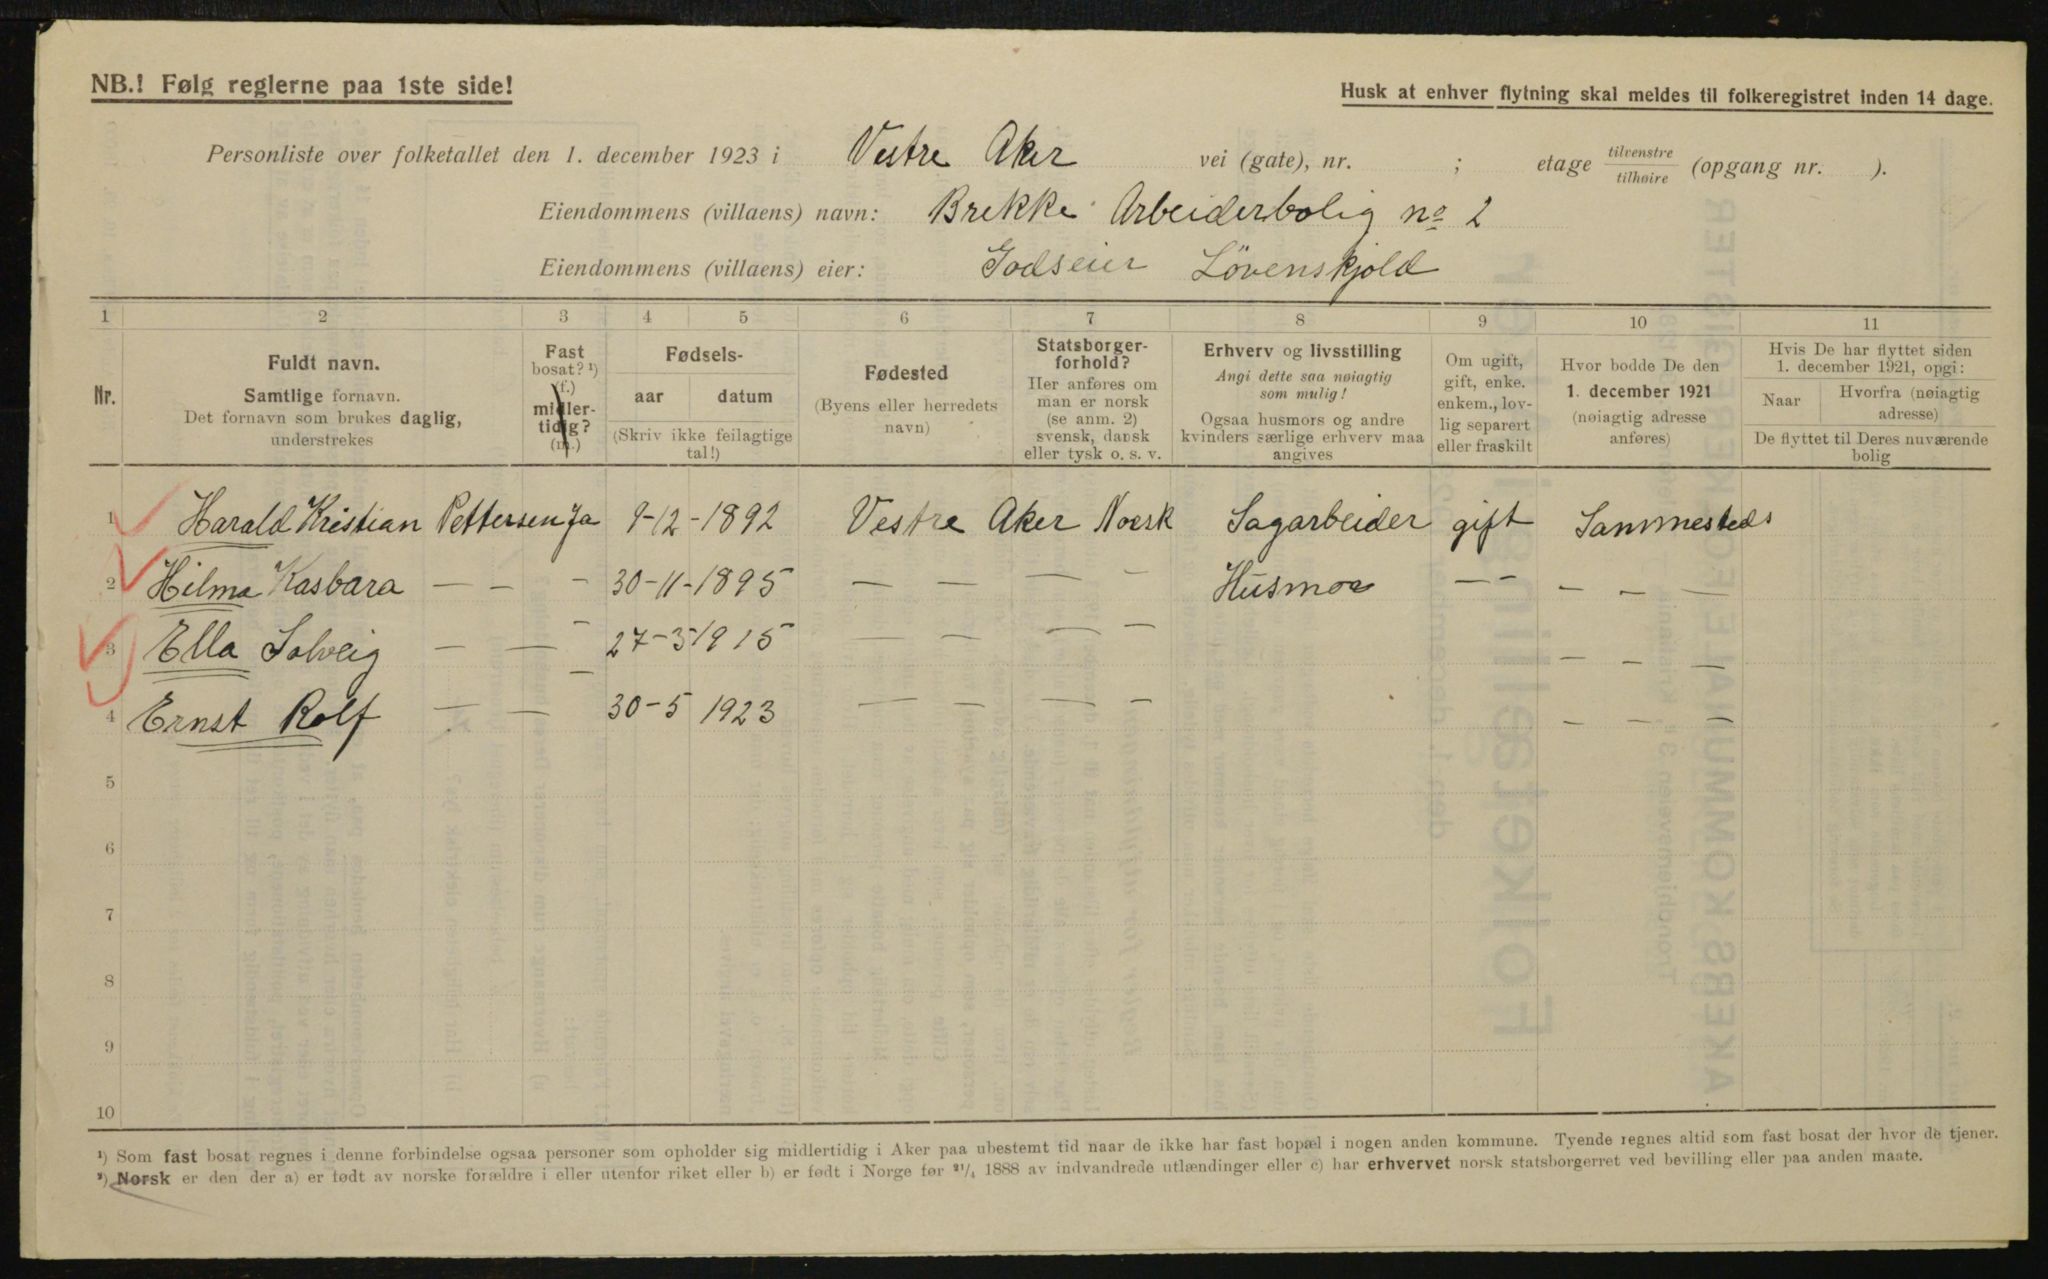 NB.! Følg reglerne paa 1ste side!
Husk at enhver flytning skal meldes til folkeregistret inden 14 dage.
Personliste over folketallet den 1. december 1923 i Vestre Aker vei (gate), nr. ; etage tilvenstre/tilhøire (opgang nr. ).
Eiendommens (villaens) navn: Brekke Arbeiderbolig no 2
Eiendommens (villaens) eier: Godseier Lövenskjold
1 2 3 4 5 6 7 8 9 10 11
Nr.
Fuldt navn.
Samtlige fornavn.
Det fornavn som brukes daglig,
understrekes
Fast
bosat? ¹)
(f.)
midler-
tidig?
(m.)
Fødsels-
aar datum
(Skriv ikke feilagtige
tal!)
Fødested
(Byens eller herredets
navn)
Statsborger-
forhold?
Her anføres om
man er norsk
(se anm. 2)
svensk, dansk
eller tysk o. s. v.
Erhverv og livsstilling
Angi dette saa nøiagtig
som mulig!
Ogsaa husmors og andre
kvinders særlige erhverv maa
angives
Om ugift,
gift, enke.
enkem., lov-
lig separert
eller fraskilt
Hvor bodde De den
1. december 1921
(nøiagtig adresse
anføres)
Hvis De har flyttet siden
1. december 1921, opgi:
Naar Hvorfra (nøiagtig
adresse)
De flyttet til Deres nuværende
bolig
1 Harald Kristian Pettersen Ja 9-12-1892 Vestre Aker Norsk Sagarbeider gift Sammesteds
2 Hilma Kasbara — — – 30-11-1895 — — — – Husmor — – – – —
3 Ella Solveig — — – 27-3 1915 — — — – – – —
4 Ernst Rolf — — – 30-5 1923 — — — – – – –
5
6
7
8
9
10
¹) Som fast bosat regnes i denne forbindelse ogsaa personer som opholder sig midlertidig i Aker paa ubestemt tid naar de ikke har fast bopæl i nogen anden kommune. Tyende regnes altid som fast bosat der hvor de tjener.
²) Norsk er den der a) er født av norske forældre i eller utenfor riket eller b) er født i Norge før ²¹/₄ 1888 av indvandrede utlændinger eller c) har erhvervet norsk statsborgerret ved bevilling eller paa anden maate.